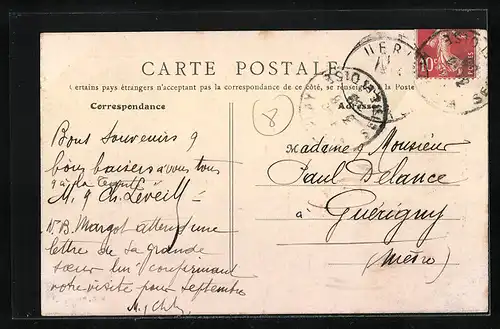 CARTE POSTALE
Certains pays étrangers n'acceptant pas la correspondance de ce côté, se renseigner à la Poste
Correspondance
Adresse
8
10c
SEINE-ET-OISE
Bons souvenirs &
bons baisers à vous tous
M. & Ch. Léveillé
N.B. Margot attend une
lettre de sa grande
sœur lui confirmant
votre visite pour septembre
Madame & Monsieur
Paul Delance
à Guérigny
(Nièvre)